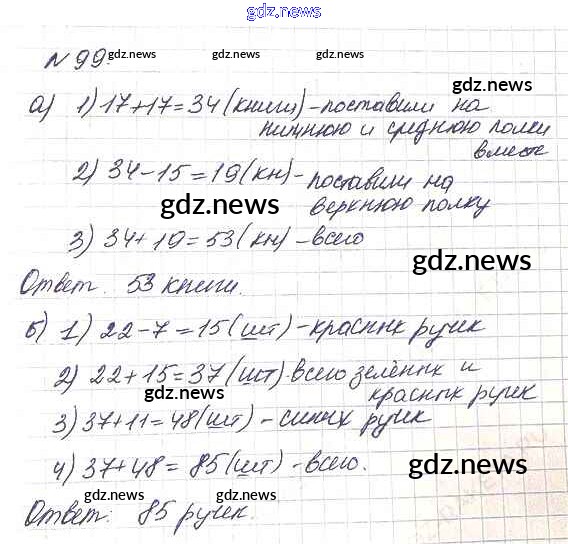 gdz.news
№ 99. gdz.news gdz.news gdz.news
gdz.news
а) 1) 17+17=34 (книги) - поставили на
нижнюю и среднюю полки
вместе
2) 34-15=19 (кн) - поставили на
gdz.news верхнюю полку
3) 34+19=53 (кн) - всего
gdz.news
Ответ. 53 книги.
б) 1) 22-7=15 (шт) - красных ручек
2) 22+15=37 (шт) всего зелёных и
gdz.news красных ручек
3) 37+11=48 (шт) - синих ручек
4) 37+48=85 (шт) - всего.
gdz.news
gdz.news gdz.news
Ответ: 85 ручек.